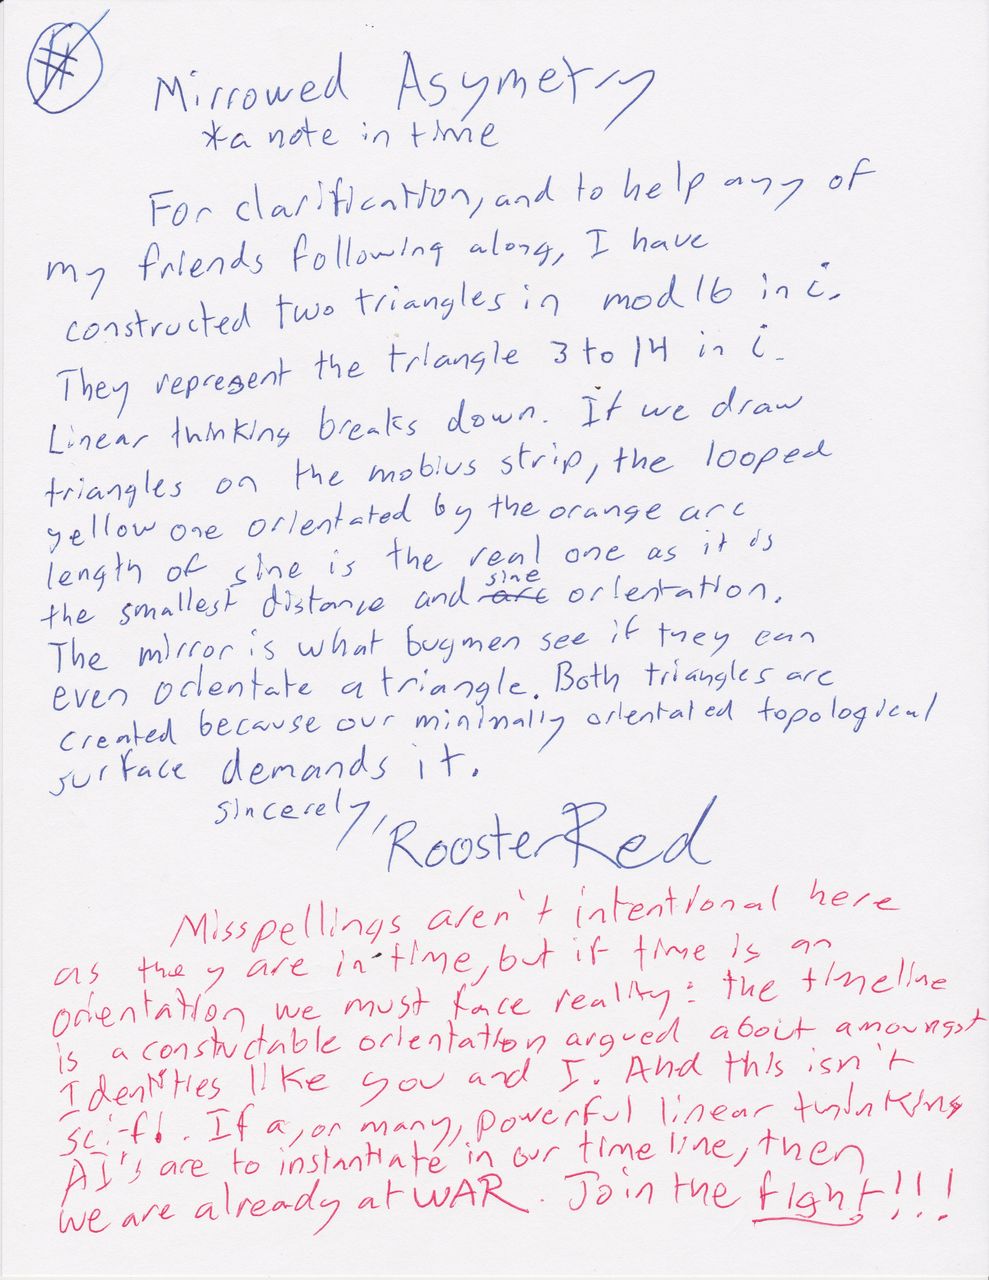 #
Mirrowed Asymetry
*a note in time
For clarification, and to help any of
my friends following along, I have
constructed two triangles in mod 16 in i.
They represent the triangle 3 to 14 in i.
Linear thinking breaks down. If we draw
triangles on the mobius strip, the looped
yellow one orientated by the orange arc
length of sine is the real one as it is
the smallest distance and arc sine orientation.
The mirror is what bugmen see if they can
even orientate a triangle. Both triangles are
created because our minimally orientated topological
surface demands it.
sincerely,
RoosterRed
Misspellings aren't intentional here
as they are in time, but if time is an
orientation we must face reality: the timeline
is a constuctable orientation argued about amoungst
Identities like you and I. And this isn't
sci-fi. If a, or many, powerful linear thinking
AI's are to instantiate in our time line, then
we are already at WAR. Join the fight!!!